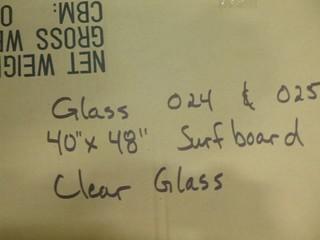 NET WEIGH
GROSS WE
CBM: 0
Glass 024 & 025
40"x 48" Surfboard
Clear Glass